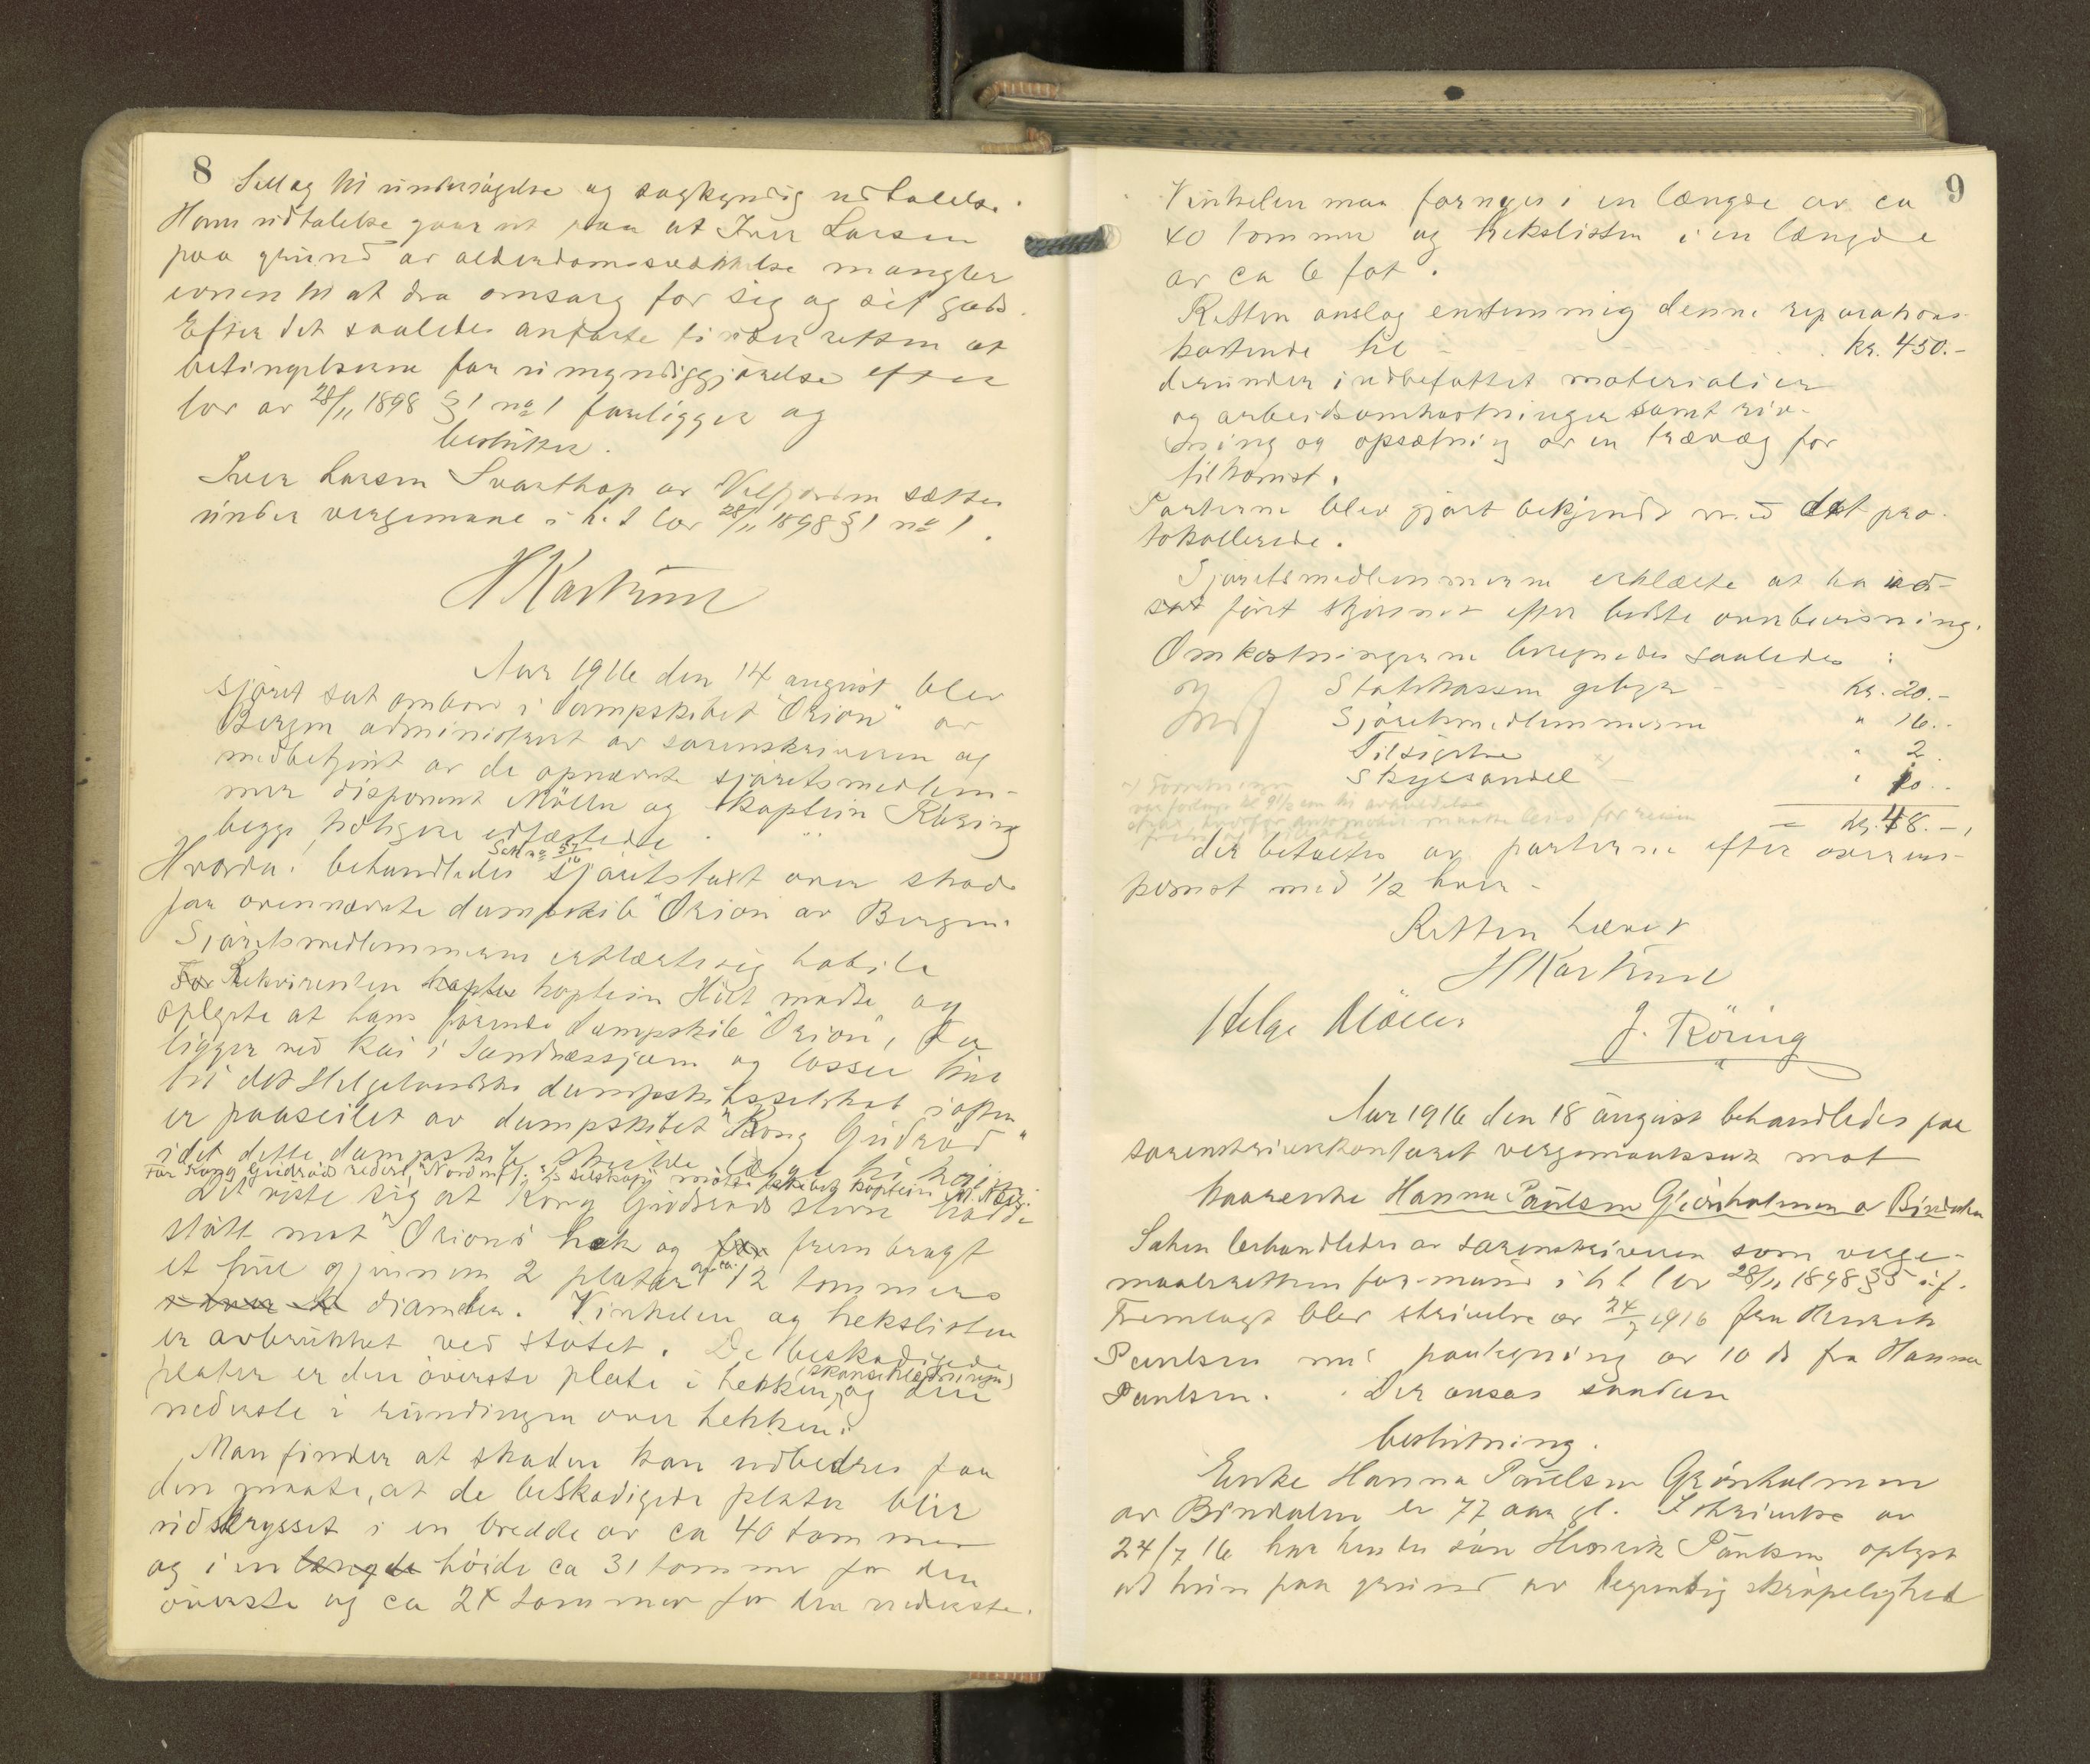 8
Sellæg til undersøgelse og sagkyndig udtalelse.
Hans udtalelse gaar ut paa at Iver Larsen
paa grund av alderdomssvækkelse mangler
evnen til at dra omsorg for sig og sit gods.
Efter det saaledes anførte finder retten at
betingelserne for umyndiggjørelse efter
lov av 28/11 1898 § 1 no 1 foreligger og
beslutter.
Iver Larsen Svarthop av Velfjorden sættes
under vergemaal i h.t lov 28/11 1898 § 1 no 1.
H Kastrud
Aar 1916 den 14 august blev
sjøret sat ombord i dampskibet "Orion" av
Bergen administrert av sorenskriveren og
medbetjent av de opnævnte sjøretsmedlem-
mer disponent Møller og kaptein Røring
begge tidligere edfæstede.
Hvorda: behandledes Sak no 37/16 sjøretstakst over skade
paa ovennævnte dampskib "Orion" av Bergen.
Sjøretsmedlemmerne erklærte sig habile
For Rekvirenten kapte kaptein Hilt mødte og
oplyste at hans førende dampskib "Orion", da
ligger ved kai i Sandnessjøen og losser kul
til det Helgelandske dampskibsselskab iaften
er paaseilet av dampskibet "Kong Gudrød"
idet dette dampskib skulde lægge til kaien.
For Kong Gudrøds rederi "Nordenf. D/s selskap" mødte skibets kaptein M. Næss.
Det viste sig at Kong Gudrøds stevn hadde
støtt mot "Orions" hek og for frembragt
et hul gjennem 2 plater av ca. 12 tommers
diameter. Vinkelen og hekslisten
er avbrukket ved støtet. De beskadigede
plater er den øverste plate i hekken (skanseklædningen) og den
nederste i rundingen over hekken.
Man finder at skaden kan udbedres paa
den maate, at de beskadigede plater blir
udskrysset i en bredde av ca 40 tommer
og i en længde høide ca 31 tommer for den
øverste og ca 24 tommer for den nederste.
9
Vinkelen maa fornyes i en længde av ca
40 tommer og hekslisten i en længde
av ca 6 fot.
Retten anslog enstemmig denne reparations-
kostende til - kr. 450.-
derunder indbefattet materialier
og arbeidsomkostninger samt riv-
ning og opsætning av en trævæg for
tilkomst.
Parterne blev gjort bekjendt med det pro-
tokollerede.
Sjøretsmedlemmerne erklærte at ha ud-
sat ført skjønnet efter bedste overbevisning.
Omkostningerne beregnedes saaledes:
Statskassen gebyr - kr. 20.-
Sjøretsmedlemmerne " 16.-
Tilsigelse " 2.
Skyssandel x) - " 10.-
x) Forretningen
= kr. 48.-,
der betaltes av parterne efter overens-
komst med 1/2 hver -
Retten hævet
H Kastrud
Helge Møller
J. Röring
Aar 1916 den 18 august behandledes paa
sorenskriverkontoret vergemaalssak mot
kaarenke Hanna Paulsen Grönholmen av Bindalen
Saken behandledes av sorenskriveren som verge-
maalsrettens formand i h t lov 28/11 1898 § 5 i.f.
Fremlagt blev skrivelse av 24/7 1916 fra Henrik
Paulsen med paategning av 10 ds fra Hanna
Paulsen. Der avsas saadan
beslutning.
Enke Hanna Paulsen Grönholmen
av Bindalen er 77 aar gl. I skrivelse av
24/7 16 har hendes søn Henrik Paulsen oplyst
at hun paa grund av legemlig skrøpelighed